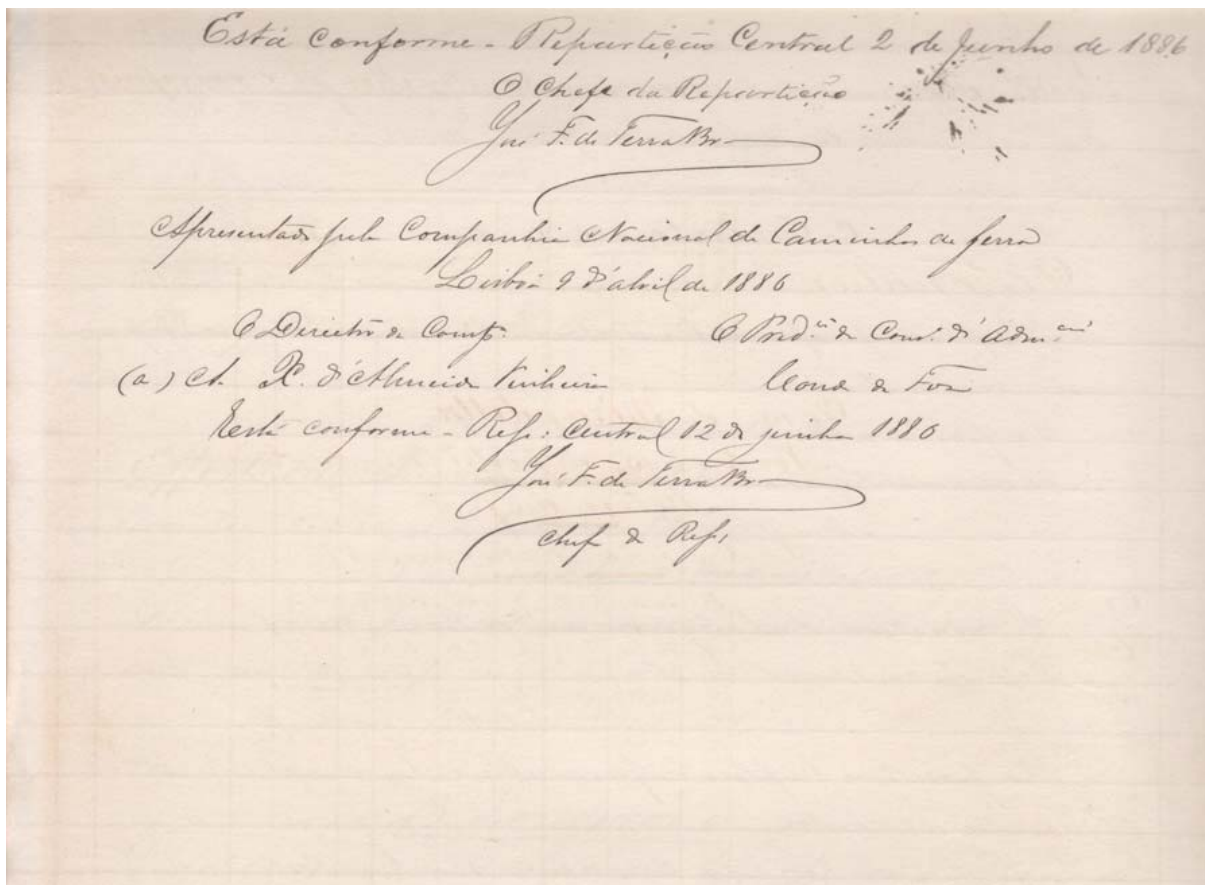 Está conforme - Repartição Central 2 de Junho de 1886
O Chefe da Repartição
José F. de Terra Br
Apresentado pela Companhia Nacional de Caminhos de ferro
Lisboa 9 d'abril de 1886
O Director da Comp.ª O Presid.te do Cons. d'Adm.ção
(a) A. X. d'Almeida Pinheiro Conde da Foz
Está conforme - Rep. Central 12 de junho 1886
José F. de Terra Br
Chefe da Rep.